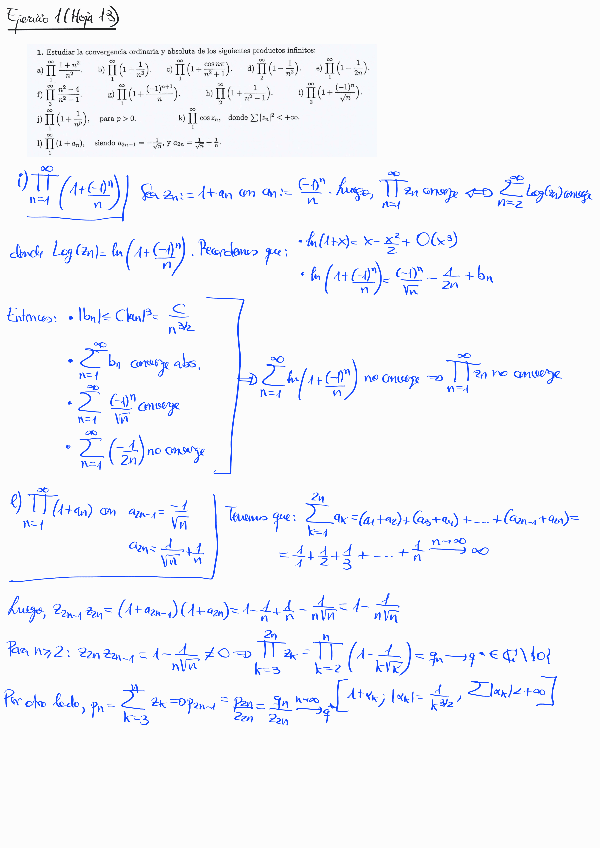 Ejercicio 1 (Hoja 13)
1. Estudiar la convergencia ordinaria y absoluta de los siguientes productos infinitos:
a) ∏_1^∞ (1+n²)/n². b) ∏_1^∞ (1 − 1/n³). c) ∏_1^∞ (1 + cos nx/(n²+1)). d) ∏_2^∞ (1 − 1/n²). e) ∏_1^∞ (1 − 1/2n).
f) ∏_3^∞ (n²−4)/(n²−1). g) ∏_1^∞ (1 + (−1)^{n+1}/n). h) ∏_2^∞ (1 + 1/(n²−1)). i) ∏_2^∞ (1 + (−1)^n/√n).
j) ∏_1^∞ (1 + 1/n^p), para p > 0. k) ∏_1^∞ cos z_n, donde ∑|z_n|² < +∞.
l) ∏_1^∞ (1 + a_n), siendo a_{2n−1} = −1/√n, y a_{2n} = 1/√n + 1/n.
i) ∏_{n=1}^∞ (1+(-1)^n/n) Sea z_n := 1+a_n con a_n := (-1)^n/n. Luego, ∏_{n=1}^∞ z_n converge ⟺ ∑_{n=2}^∞ Log(z_n) converge
donde Log(z_n) = ln(1+(-1)^n/n). Recordemos que: • ln(1+x) = x − x²/2 + O(x³)
• ln(1+(-1)^n/n) = (-1)^n/√n − 1/2n + b_n
Entonces: • |b_n| ≤ C|a_n|³ = C/n^{3/2}
• ∑_{n=1}^∞ b_n converge abs.
• ∑_{n=1}^∞ (-1)^n/√n converge
• ∑_{n=1}^∞ (−1/2n) no converge
⇒ ∑_{n=1}^∞ ln(1+(-1)^n/n) no converge ⇒ ∏_{n=1}^∞ z_n no converge
l) ∏_{n=1}^∞ (1+a_n) con a_{2n−1} = −1/√n
a_{2n} = 1/√n + 1/n
Tenemos que: ∑_{k=1}^{2n} a_k = (a_1+a_2)+(a_3+a_4)+....+(a_{2n−1}+a_{2n}) =
= 1/1 + 1/2 + 1/3 + .... + 1/n →^{n→∞} ∞
Luego, z_{2n−1} z_{2n} = (1+a_{2n−1})(1+a_{2n}) = 1 − 1/n + 1/n − 1/(n√n) = 1 − 1/(n√n)
Para n ≥ 2: z_{2n} z_{2n−1} = 1 − 1/(n√n) ≠ 0 ⇒ ∏_{k=3}^{2n} z_k = ∏_{k=2}^n (1 − 1/(k√k)) = q_n → q ∈ ℂ \ {0}
Por otro lado, p_n = ∑_{k=3}^n z_k ⇒ p_{2n−1} = p_{2n}/z_{2n} = q_n/z_{2n} →^{n→∞} q [1+α_k; |α_k| = 1/k^{3/2}, ∑|α_k| < +∞]